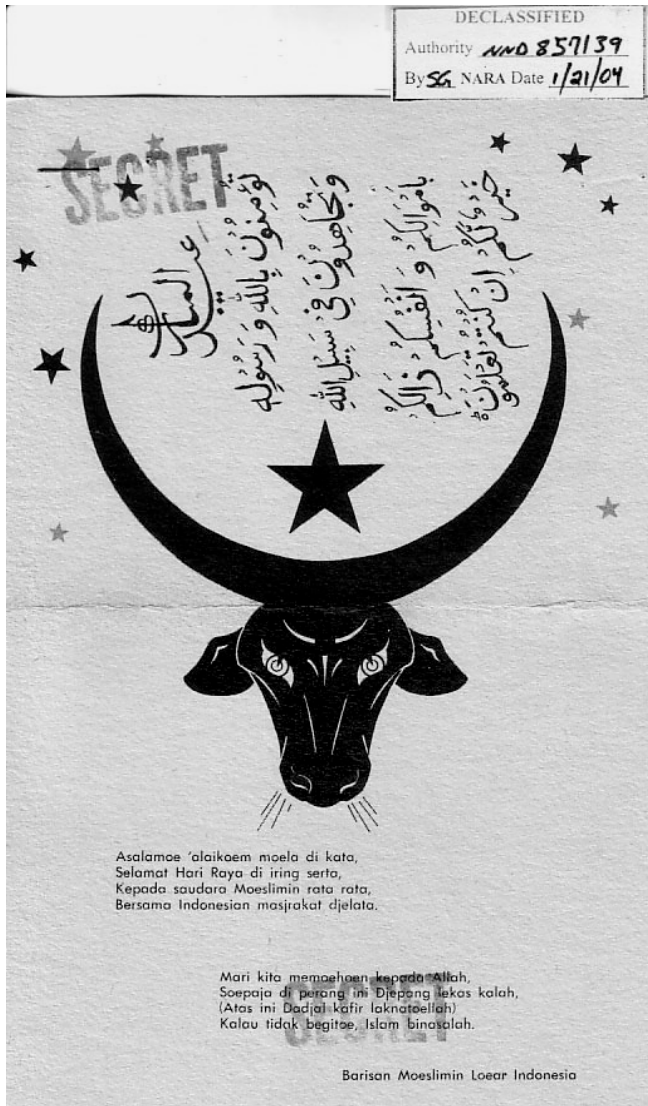 DECLASSIFIED
Authority NND 857139
By SG NARA Date 1/21/04
SECRET
عيد المبارك
تُؤْمِنُوْنَ بِاللهِ وَرَسُوْلِهِ
وَتُجَاهِدُوْنَ فِيْ سَبِيْلِ اللهِ
بِاَمْوَالِكُمْ وَاَنْفُسِكُمْ ذَالِكُمْ
خَيْرٌ لَكُمْ اِنْ كُنْتُمْ تَعْلَمُوْنَ
Asalamoe 'alaikoem moela di kata,
Selamat Hari Raya di iring serta,
Kepada saudara Moeslimin rata rata,
Bersama Indonesian masjrakat djelata.
Mari kita memoehoen kepada Allah,
Soepaja di perang ini Djepang lekas kalah,
(Atas ini Dadjal kafir laknatoellah)
Kalau tidak begitoe, Islam binasalah.
SECRET
Barisan Moeslimin Loear Indonesia